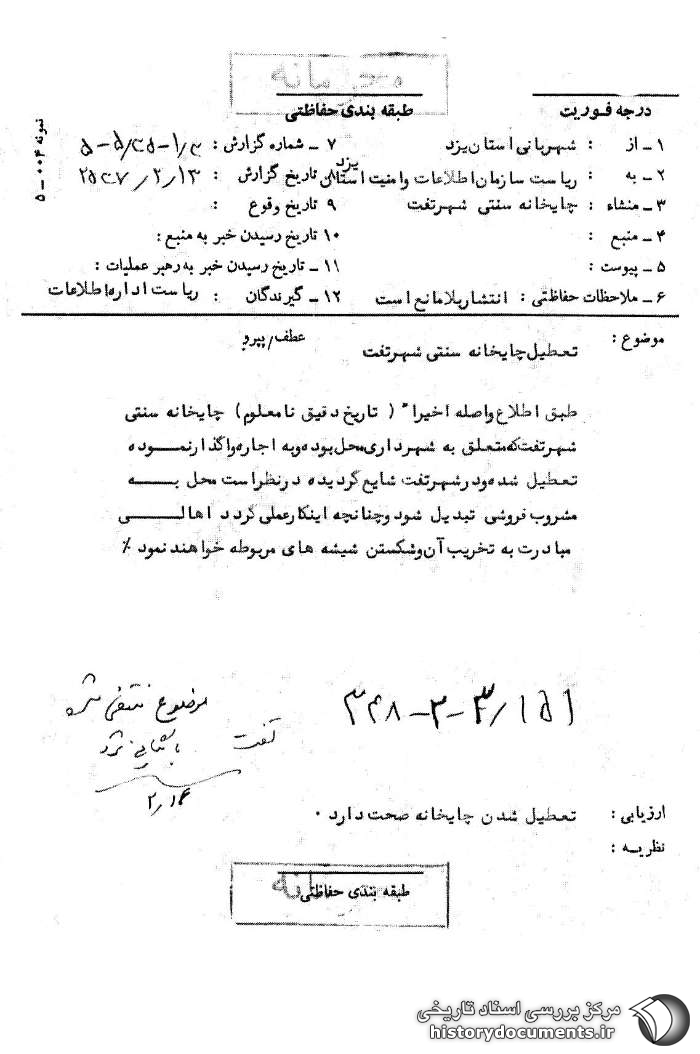 درجه فوریت
طبقه بندی حفاظتی
نمونه ۰۰۴ ـ ۵
۱ ـ از : شهربانی استان یزد
۷ ـ شماره گزارش :
۲ ـ به : ریاست سازمان اطلاعات وامنیت استان یزد
۸ـ تاریخ گزارش : ۲۵۳۷/۲/۱۳
۳ ـ منشاء : چایخانه سنتی شهرتفت
۹ تاریخ وقوع :
۴ ـ منبع :
۱۰ تاریخ رسیدن خبر به منبع :
۵ ـ پیوست :
۱۱ ـ تاریخ رسیدن خبر به رهبر عملیات :
۶ ـ ملاحظات حفاظتی : انتشاربلامانع است
۱۲ ـ گیرندگان : ریاست اداره اطلاعات
موضوع : تعطیل چایخانه سنتی شهرتفت
عطف/پیرو
طبق اطلاع واصله اخیراً ( تاریخ دقیق نامعلوم) چایخانه سنتی
شهرتفت که متعلق به شهرداری محل بوده وبه اجاره واگذارنمــوده
تعطیل شده ودرشهرتفت شایع گردیده درنظراست محل بــــه
مشروب فروشی تبدیل شود وچنانچه اینکارعملی گردد اهالـــی
مبادرت به تخریب آن وشکستن شیشه های مربوطه خواهند نمود ٪
۳۴۸-۲-۳/۱۵۱
موضوع منتفی شد
تفت
بایگانی شود
۲/۱۴
ارزیابی : تعطیل شدن چایخانه صحت دارد ۰
نظریـه :
طبقه بندی حفاظتی
مرکز بررسی اسناد تاریخی
historydocuments.ir